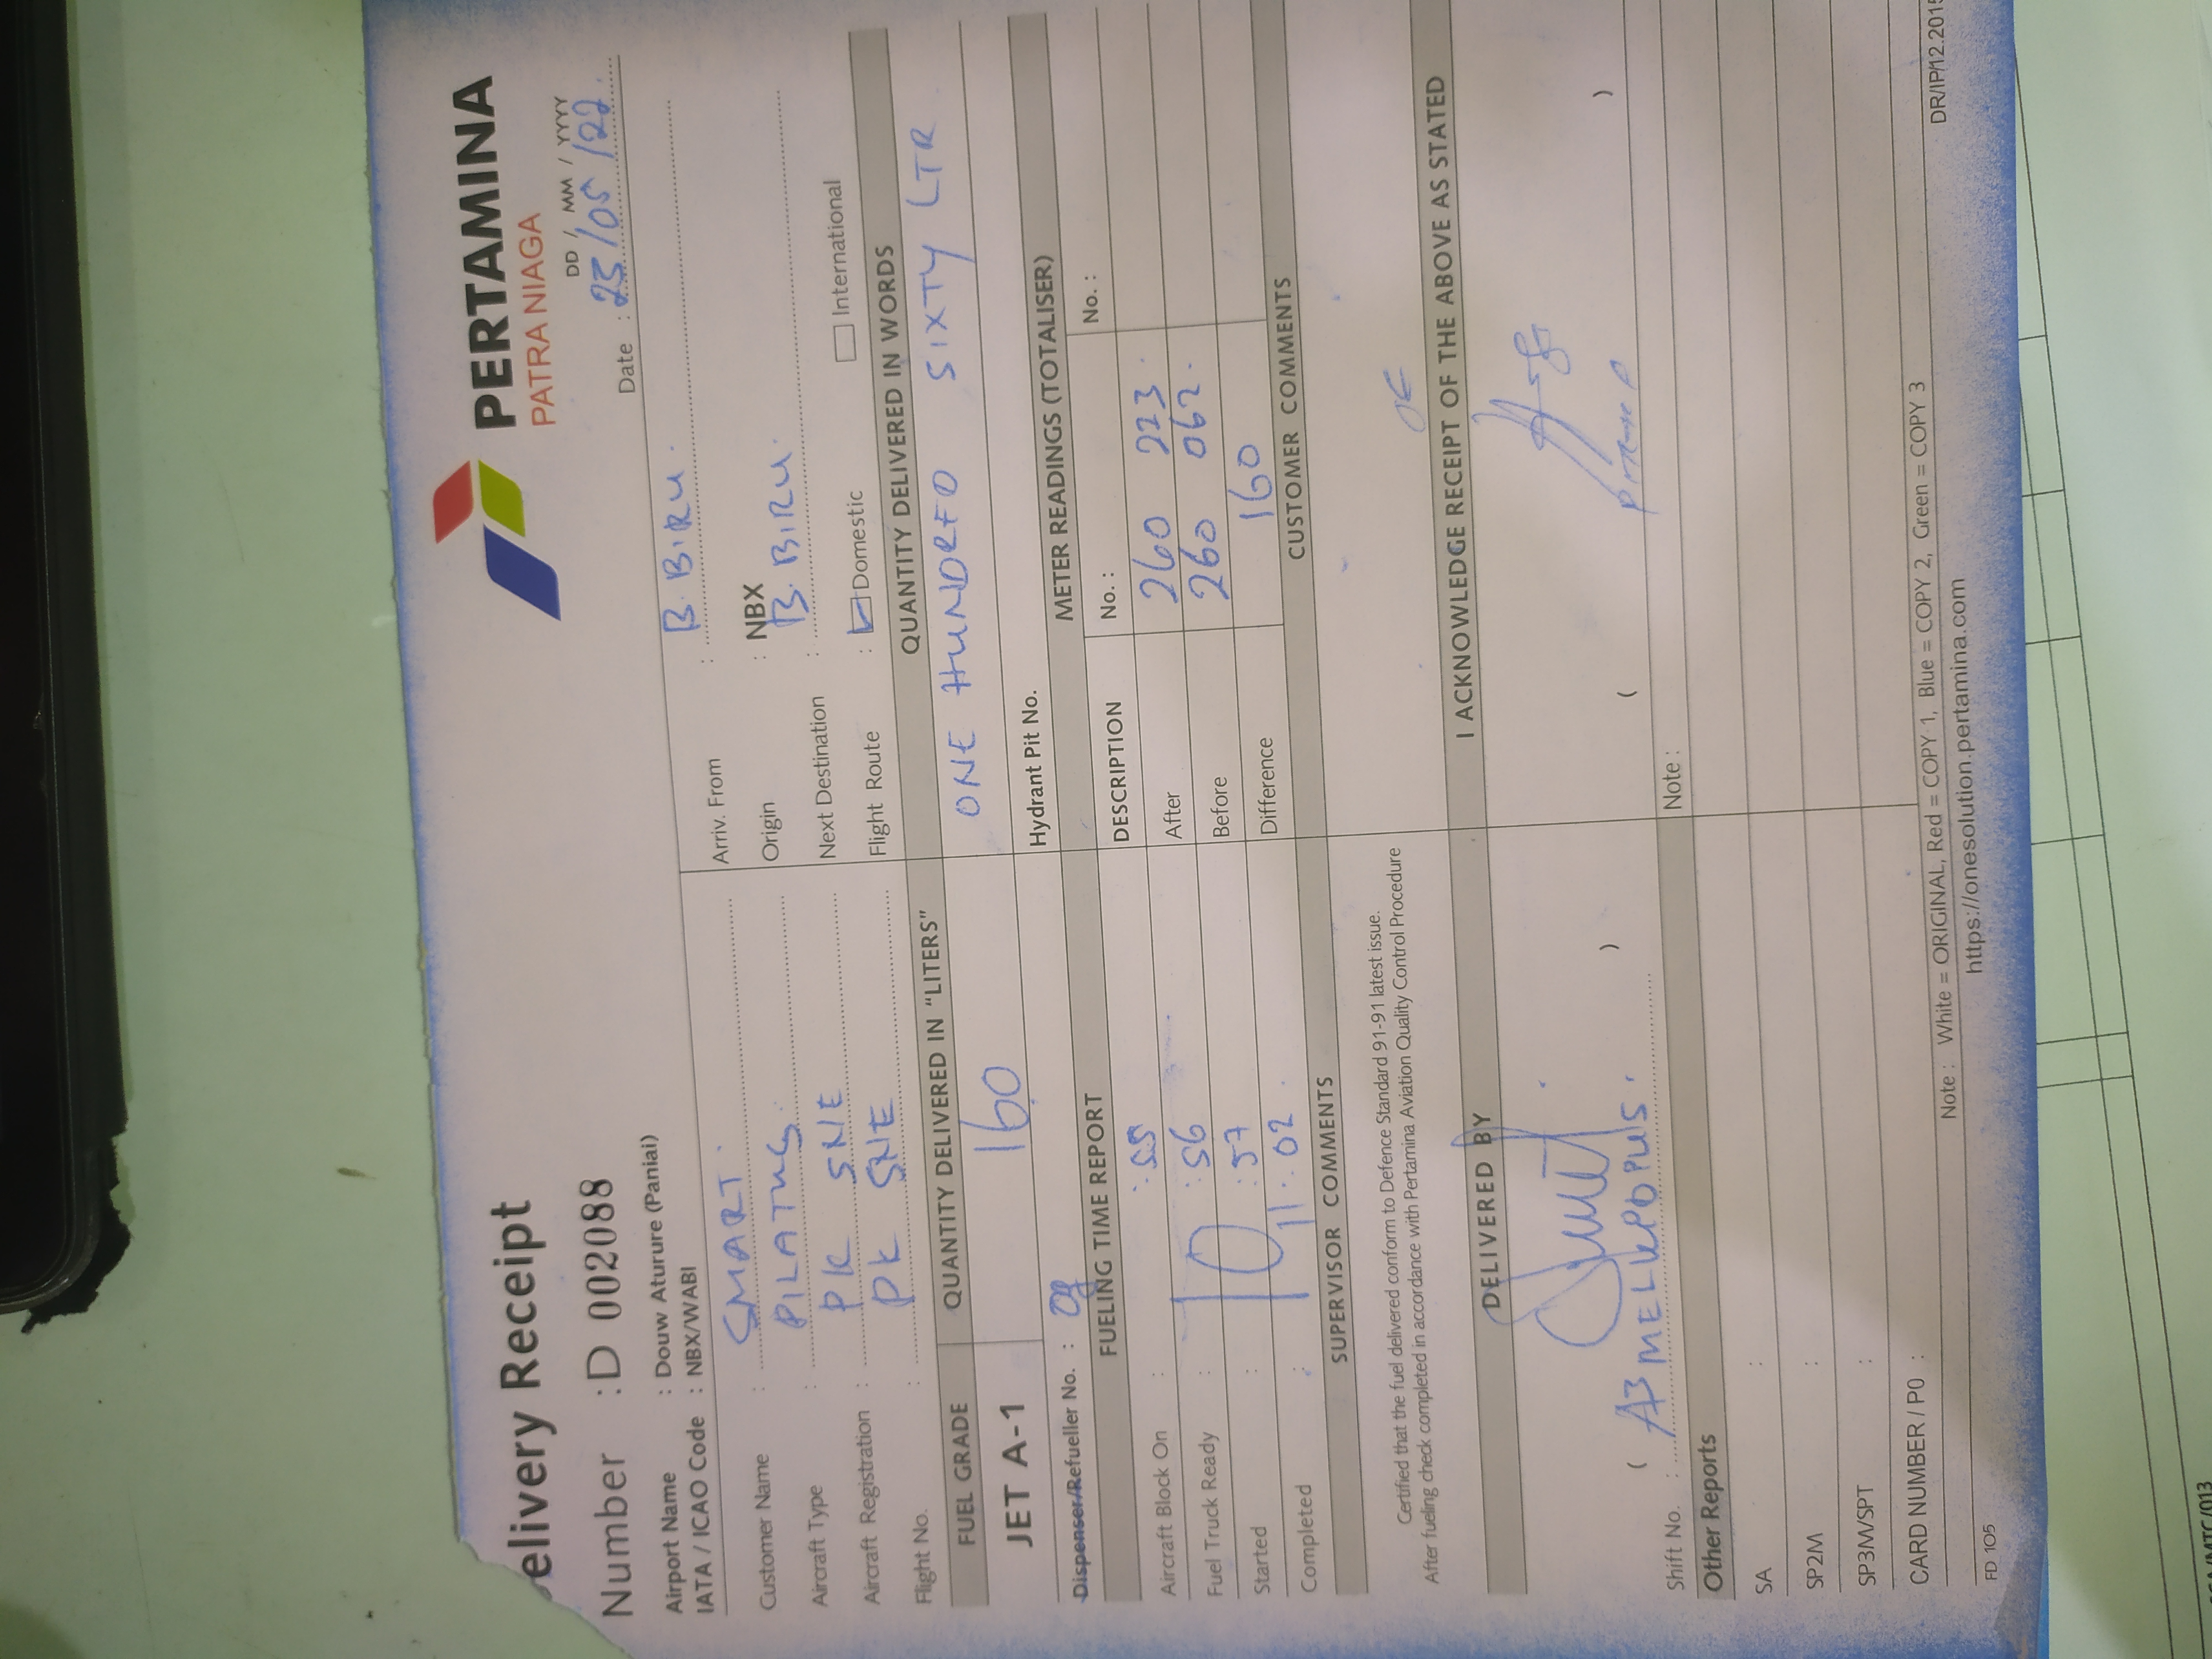 elivery Receipt
PERTAMINA
PATRA NIAGA
Number : D 002088
DD / MM / YYYY
Date : 23/05/22
Airport Name : Douw Aturure (Paniai)
IATA / ICAO Code : NBX/WABI
Customer Name : SMART.
Arriv. From : B. BIRU.
Aircraft Type : PILATUS.
Origin : NBX
Aircraft Registration : PK SNE
Next Destination : B. BIRU.
Flight No. : PK SNE
Flight Route : Domestic International
FUEL GRADE
QUANTITY DELIVERED IN "LITERS"
QUANTITY DELIVERED IN WORDS
JET A-1
160
ONE HUNDRED SIXTY LTR
Dispenser/Refueller No. : 09
Hydrant Pit No.
FUELING TIME REPORT
METER READINGS (TOTALISER)
DESCRIPTION
No. :
No. :
Aircraft Block On : : 55
After 260 223.
Fuel Truck Ready : 10 : 56
Before 260 062.
Started : : 57
Difference 160
Completed : 11 . 02
SUPERVISOR COMMENTS
CUSTOMER COMMENTS
Certified that the fuel delivered conform to Defence Standard 91-91 latest issue.
After fueling check completed in accordance with Pertamina Aviation Quality Control Procedure
DELIVERED BY
I ACKNOWLEDGE RECEIPT OF THE ABOVE AS STATED
( )
( )
Shift No. :
Note :
Other Reports
SA :
SP2M :
SP3M/SPT :
CARD NUMBER / P0 :
Note : White = ORIGINAL, Red = COPY 1, Blue = COPY 2, Green = COPY 3
FD 105
https://onesolution.pertamina.com
DR/IP/12.2015